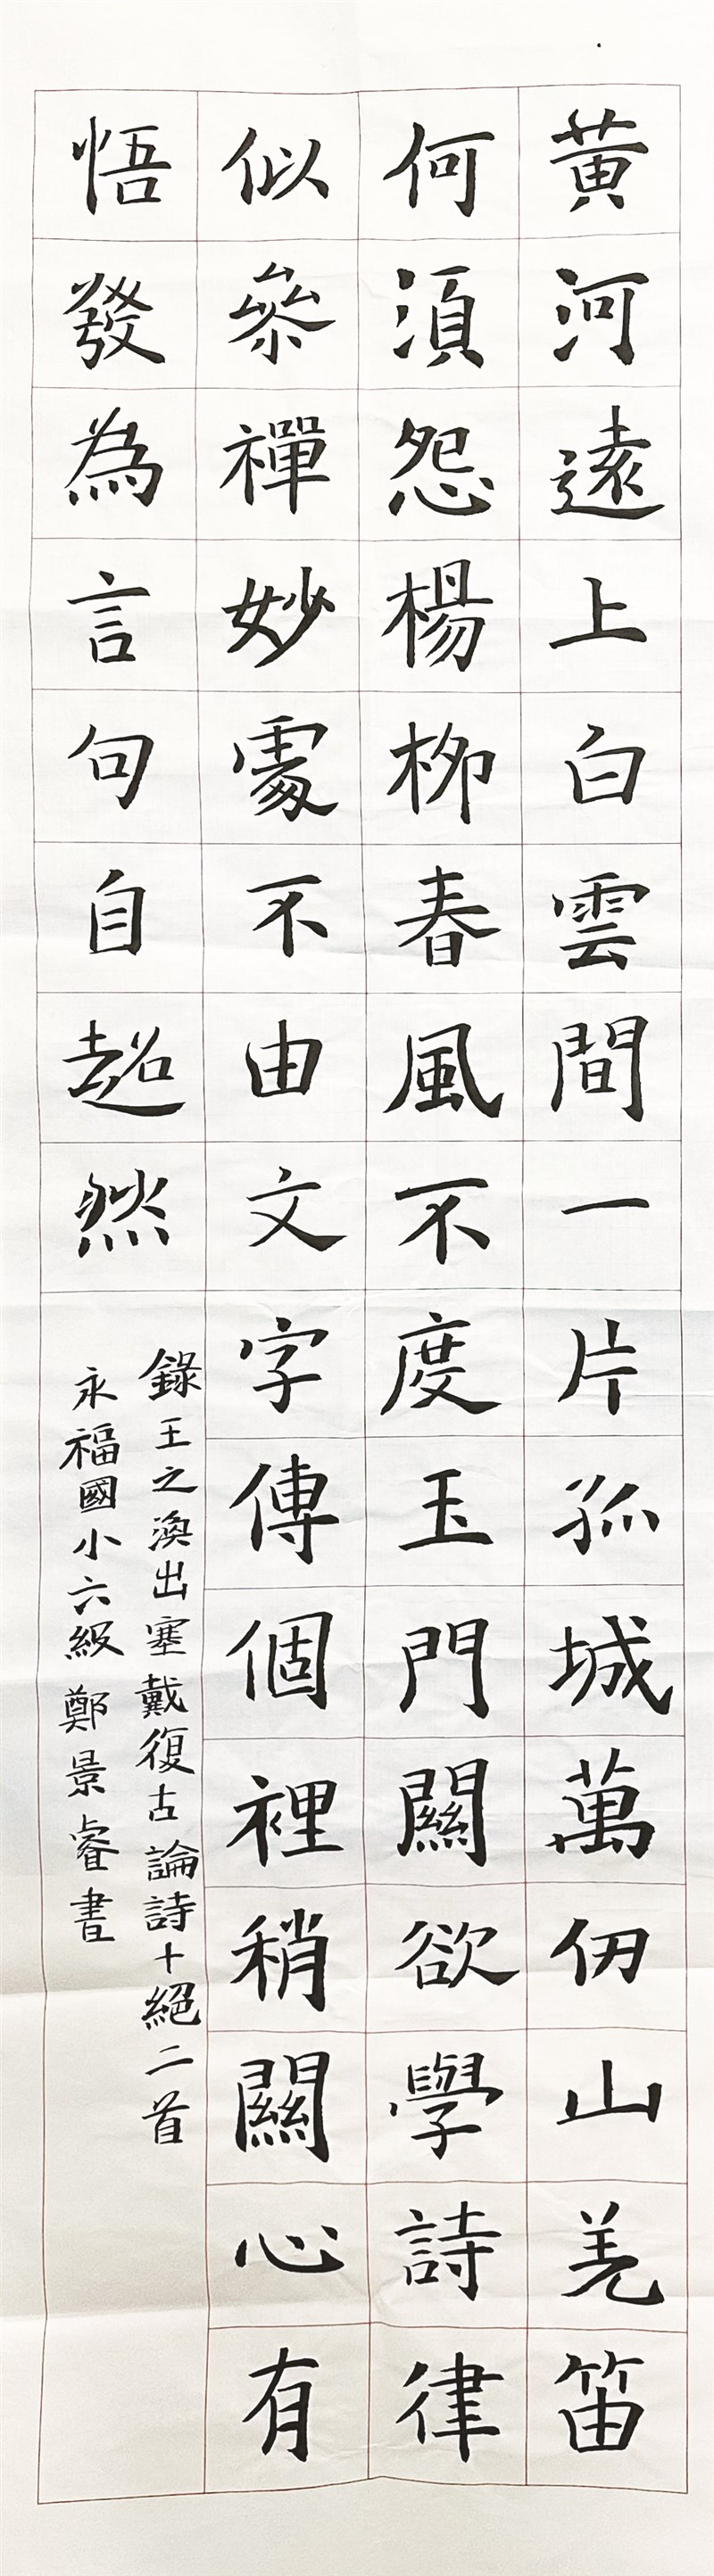 黃河遠上白雲間一片孤城萬仞山羌笛
何須怨楊柳春風不度玉門關欲學詩律
似參禪妙處不由文字傳個裡稍關心有
悟發為言句自超然
錄王之渙出塞戴復古論詩十絕二首
永福國小六級鄭景睿書